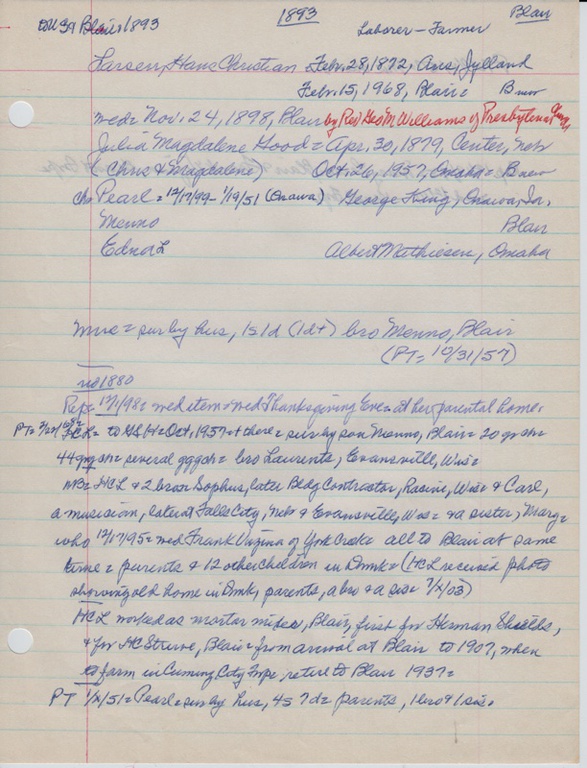 1893
Blair
Blair 1893
Laborer - Farmer
Larsen, Hans Christian Febr. 28, 1872, Ars, Jylland
Febr. 15, 1968, Blair = B new
wed = Nov. 24, 1898, Blair by Rev Geo M Williams of Presbyterian
Julia Magdalene Hood = Apr. 30, 1879, Center, Neb
(Chris & Magdalene) Oct. 26, 1957, Omaha = B new
ch = Pearl = 12/17/99 - 1/19/51 (Onawa) George King, Onawa, Ia,
Menno Blair
Edna L Albert Mathiesen, Omaha
Mrs = sur by hus, 1s 1d (1d+) bro Menno, Blair
(PT = 10/31/57)
no 1880
Rep = 12/1/98 = wed item = wed Thanksgiving Eve = at her parental home.
HCL = to Oct. 1957 + there = sur by son Menno, Blair = 20 grch =
several = bro Laurents, Evansville, Wis =
HCL & 2 bros = Sophus, later Bldg Contractor, Racine, Wis & Carl,
a musician, later at Falls City, Neb & Evansville, Wis = & a sister, Mary =
who 12/17/95 = wed Frank of York Creek = all to Blair at same
time = parents & 12 other children in Dmk = (HCL received photo
showing old home in Dmk, parents, a bro & a sis = 7/X/03)
HCL worked as mortar mixer, Blair, first for Herman Shields,
& for HC Struve, Blair = from arrival at Blair to 1907, when
to farm in Cuming City Twp, return to Blair 1937 =
PT 1/X/51 = Pearl = sur by hus, 4s 7d = parents, 1 bro & 1 sis.